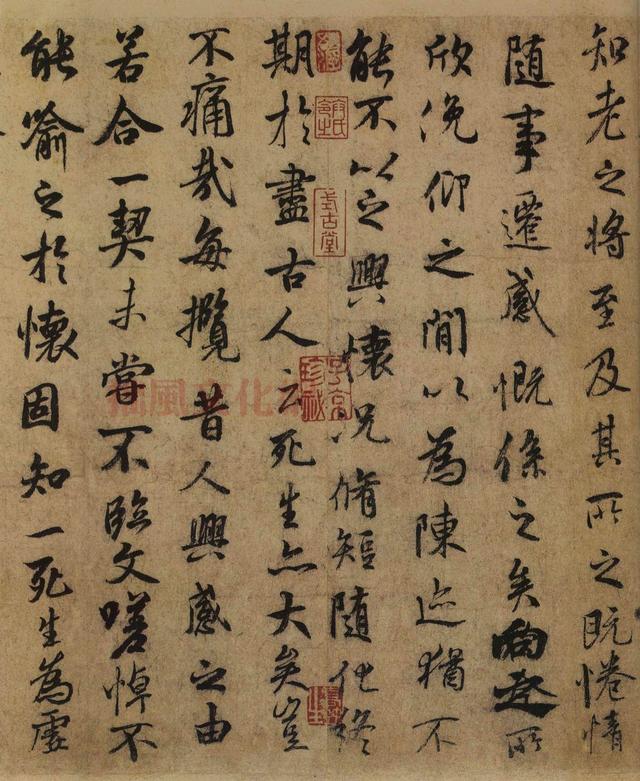 知老之将至及其所之既惓情
随事遷感慨係之矣向之所
欣俛仰之閒以為陳迹猶不
能不以之興懷况脩短随化終
期於盡古人云死生亦大矣豈
不痛哉每攬昔人興感之由
若合一契未嘗不臨文嗟悼不
能喻之於懷固知一死生為虛
式古堂
珍秘